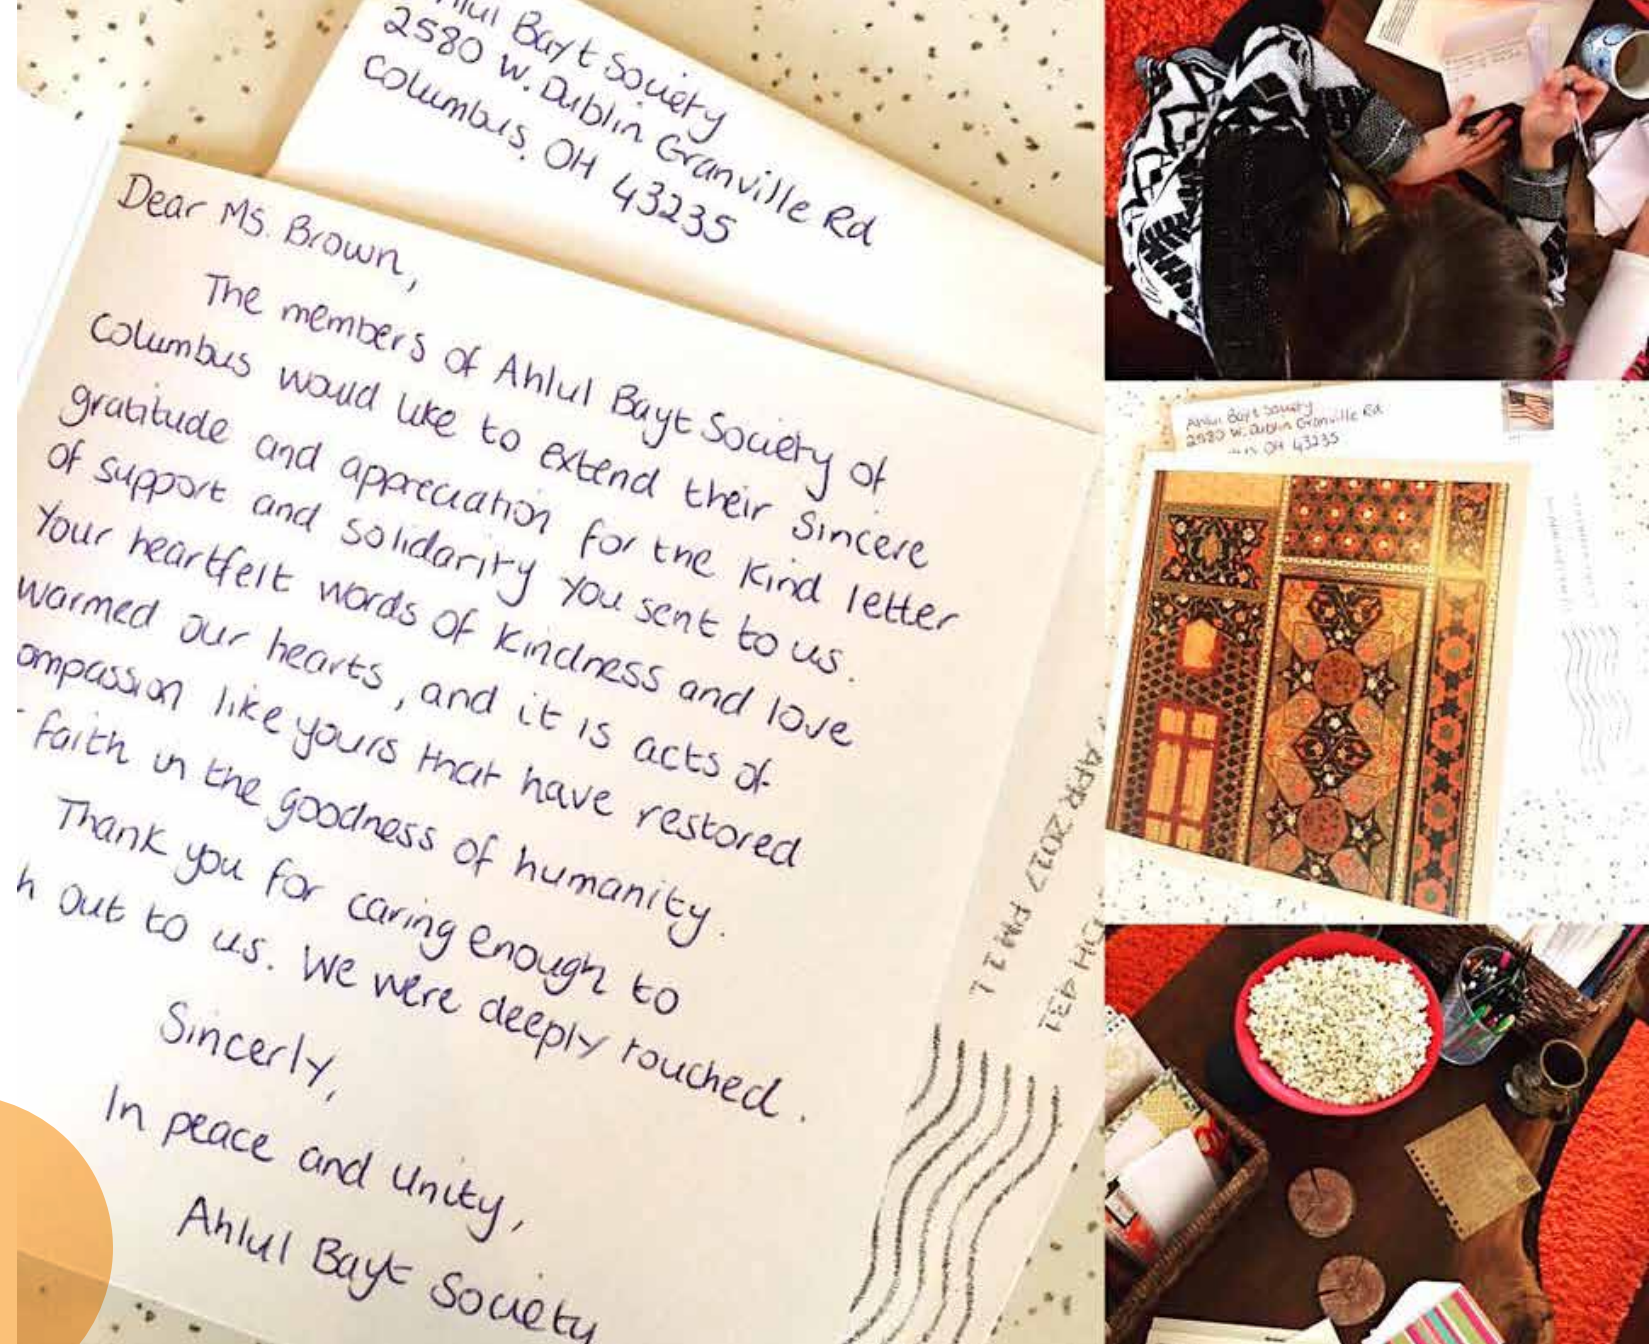 Ahlul Bayt Society
2580 W. Dublin Granville Rd
Columbus, OH 43235
Dear Ms. Brown,
The members of Ahlul Bayt Society of
Columbus would like to extend their sincere
gratitude and appreciation for the kind letter
of support and solidarity you sent to us.
Your heartfelt words of kindness and love
warmed our hearts, and it is acts of
ompassion like yours that have restored
faith in the goodness of humanity.
Thank you for caring enough to
h out to us. We were deeply touched.
Sincerly,
In peace and Unity,
Ahlul Bayt Society
APR 2017 PM 1 L
OH 431
Ahlul Bayt Society
2580 W. Dublin Granville Rd
OH 43235